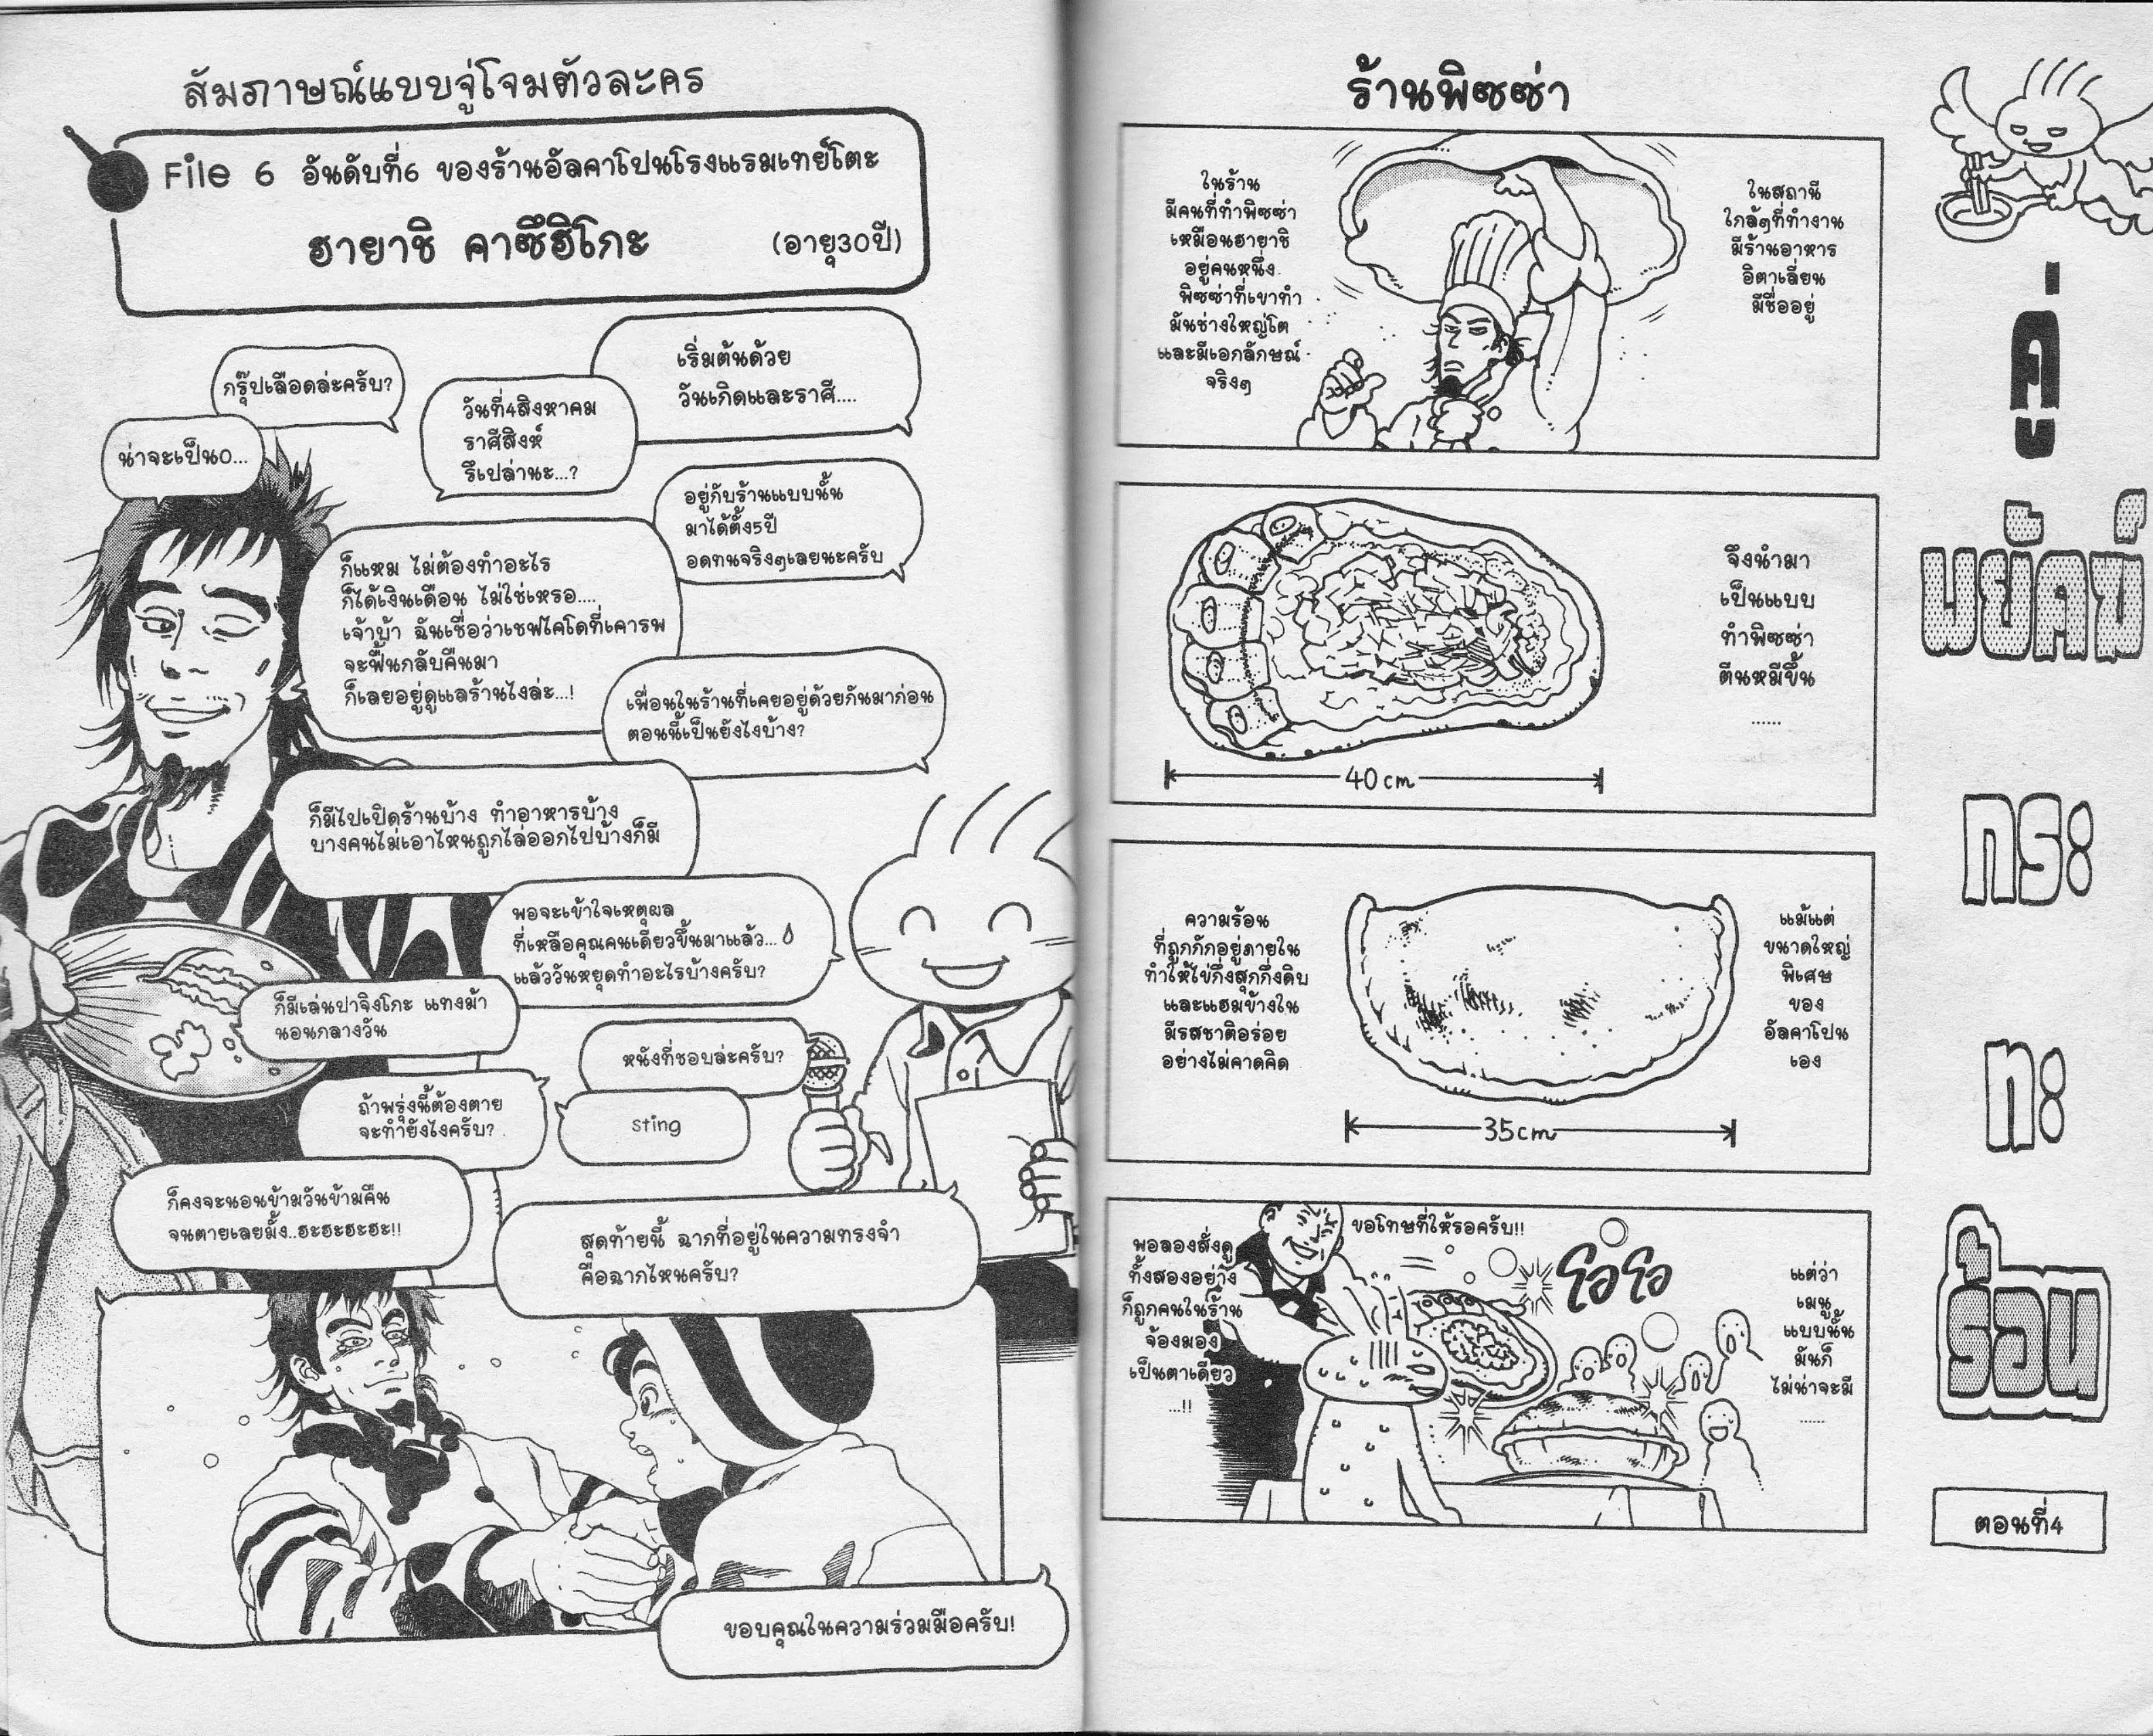 สัมภาษณ์แบบจู่โจมตัวละคร
File 6 อันดับที่6 ของร้านอัลคาโปนโรงแรมเทย์โตะ
ฮายาชิ คาซึฮิโกะ
(อายุ30ปี)
เริ่มต้นด้วย
วันเกิดและราศี....
วันที่4สิงหาคม
ราศีสิงห์
รึเปล่านะ...?
กรุ๊ปเลือดล่ะครับ?
น่าจะเป็นO...
อยู่กับร้านแบบนั้น
มาได้ตั้ง5ปี
อดทนจริงๆเลยนะครับ
ก็แหม ไม่ต้องทำอะไร
ก็ได้เงินเดือน ไม่ใช่เหรอ....
เจ้าบ้า ฉันเชื่อว่าเชฟไคโดที่เคารพ
จะฟื้นกลับคืนมา
ก็เลยอยู่ดูแลร้านไงล่ะ...!
เพื่อนในร้านที่เคยอยู่ด้วยกันมาก่อน
ตอนนี้เป็นยังไงบ้าง?
ก็มีไปเปิดร้านบ้าง ทำอาหารบ้าง
บางคนไม่เอาไหนถูกไล่ออกไปบ้างก็มี
พอจะเข้าใจเหตุผล
ที่เหลือคุณคนเดียวขึ้นมาแล้ว...
แล้ววันหยุดทำอะไรบ้างครับ?
ก็มีเล่นปาจิงโกะ แทงม้า
นอนกลางวัน
หนังที่ชอบล่ะครับ?
sting
ถ้าพรุ่งนี้ต้องตาย
จะทำยังไงครับ?
ก็คงจะนอนข้ามวันข้ามคืน
จนตายเลยมั้ง..ฮะฮะฮะฮะ!!
สุดท้ายนี้ ฉากที่อยู่ในความทรงจำ
คือฉากไหนครับ?
ขอบคุณในความร่วมมือครับ!
คู่
พยัคฆ์
กระ
ทะ
ร้อน
ตอนที่4
ร้านพิซซ่า
ในสถานี
ใกล้ๆที่ทำงาน
มีร้านอาหาร
อิตาเลี่ยน
มีชื่ออยู่
ในร้าน
มีคนที่ทำพิซซ่า
เหมือนฮายาชิ
อยู่คนหนึ่ง
พิซซ่าที่เขาทำ
มันช่างใหญ่โต
และมีเอกลักษณ์
จริงๆ
จึงนำมา
เป็นแบบ
ทำพิซซ่า
ตีนหมีขึ้น
......
40cm
แม้แต่
ขนาดใหญ่
พิเศษ
ของ
อัลคาโปน
เอง
ความร้อน
ที่ถูกกักอยู่ภายใน
ทำให้ไข่กึ่งสุกกึ่งดิบ
และแฮมข้างใน
มีรสชาติอร่อย
อย่างไม่คาดคิด
35cm
แต่ว่า
เมนู
แบบนั้น
มันก็
ไม่น่าจะมี
......
ขอโทษที่ให้รอครับ!!
โอโอ
พอลองสั่งดู
ทั้งสองอย่าง
ก็ถูกคนในร้าน
จ้องมอง
เป็นตาเดียว
...!!